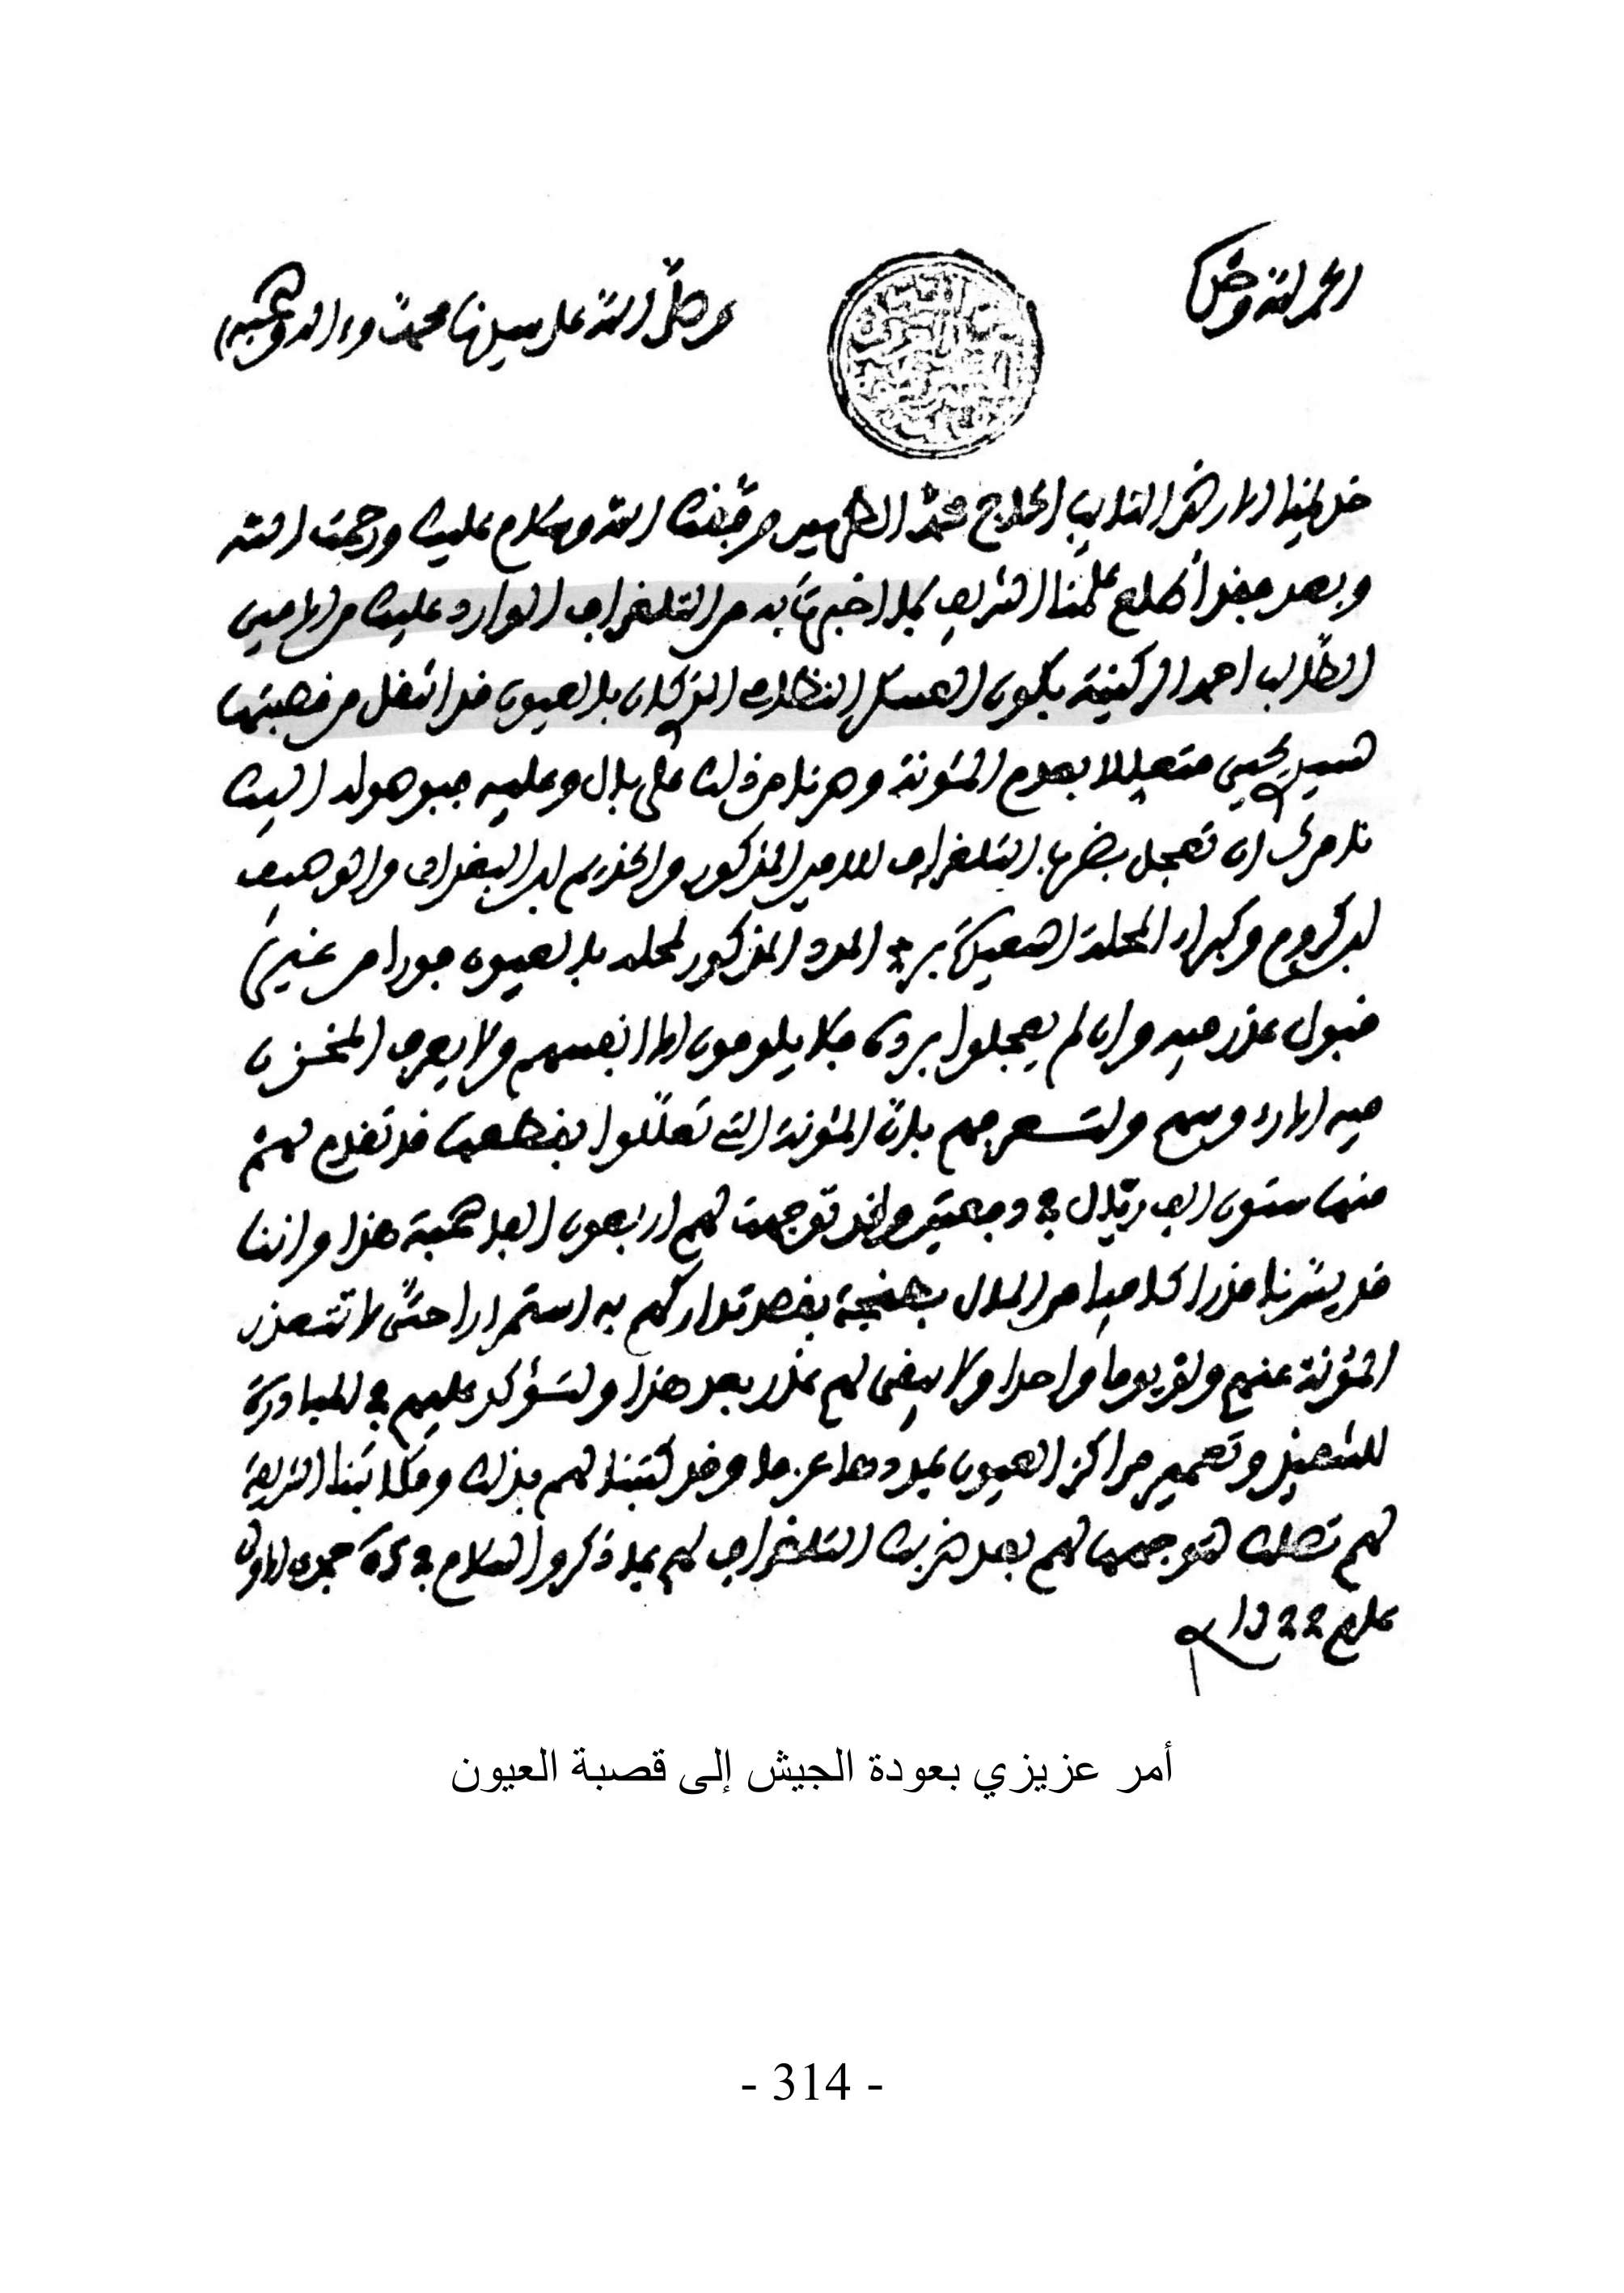 الحمد لله وحده
وصلى الله على سيدنا محمد وءاله وصحبه
خديمنا الارضى النايب الحاج محمد الطريس وفقك الله وسلام عليك ورحمت الله
وبعد فقد اطلع علمنا الشريف بما اخبرت به من التلغراف الوارد عليك من الامين
الطالب احمد الركينة بكون العسكر النظام الذي كان بالعيون قد انتقل من قصبتها
لسيدي يحيى متعللا بعدم المئونة وصرنا من ذلك على بال وعليه فبوصوله اليك
نامرك ان تعجل بضرب التلغراف للامين المذكور والخديم ابن البغدادي والوصيف
ابن كروم وكبراء المحلة السعيدة برد المدد المذكور لمحله بالعيون فورا من غير
قبول عذر فيه وان لم يعجلوا برده فلا يلومون الا انفسهم ولا يعرف المخزن
فيه الا رءوسهم ولتعرفهم بان المئونة التي تعللوا بقطعها قد تقدم لهم
منها ستون الف ريال في دفعتين والان توجهت لهم اربعون الفا صحبة هذا واننا
قد يسرنا قدرا كافيا من المال بطنجة بقصد تدارككم به استمرارا حتى لا تتعذر
المئونة عنهم ولو يوما واحدا ولا يبقى لهم عذر بعد هذا ولتؤكد عليهم في المبادرة
للتنفيذ وتعمير مراكز العيون بمددها عزما وقد كتبنا لهم بذلك ومكاتبنا الشريفة
لهم تصلك لتوجهها لهم بعد ضربك التلغراف لهم بما ذكر والسلام في جمدى الاولى
عام 1322
أمر عزيزي بعودة الجيش إلى قصبة العيون
- 314 -